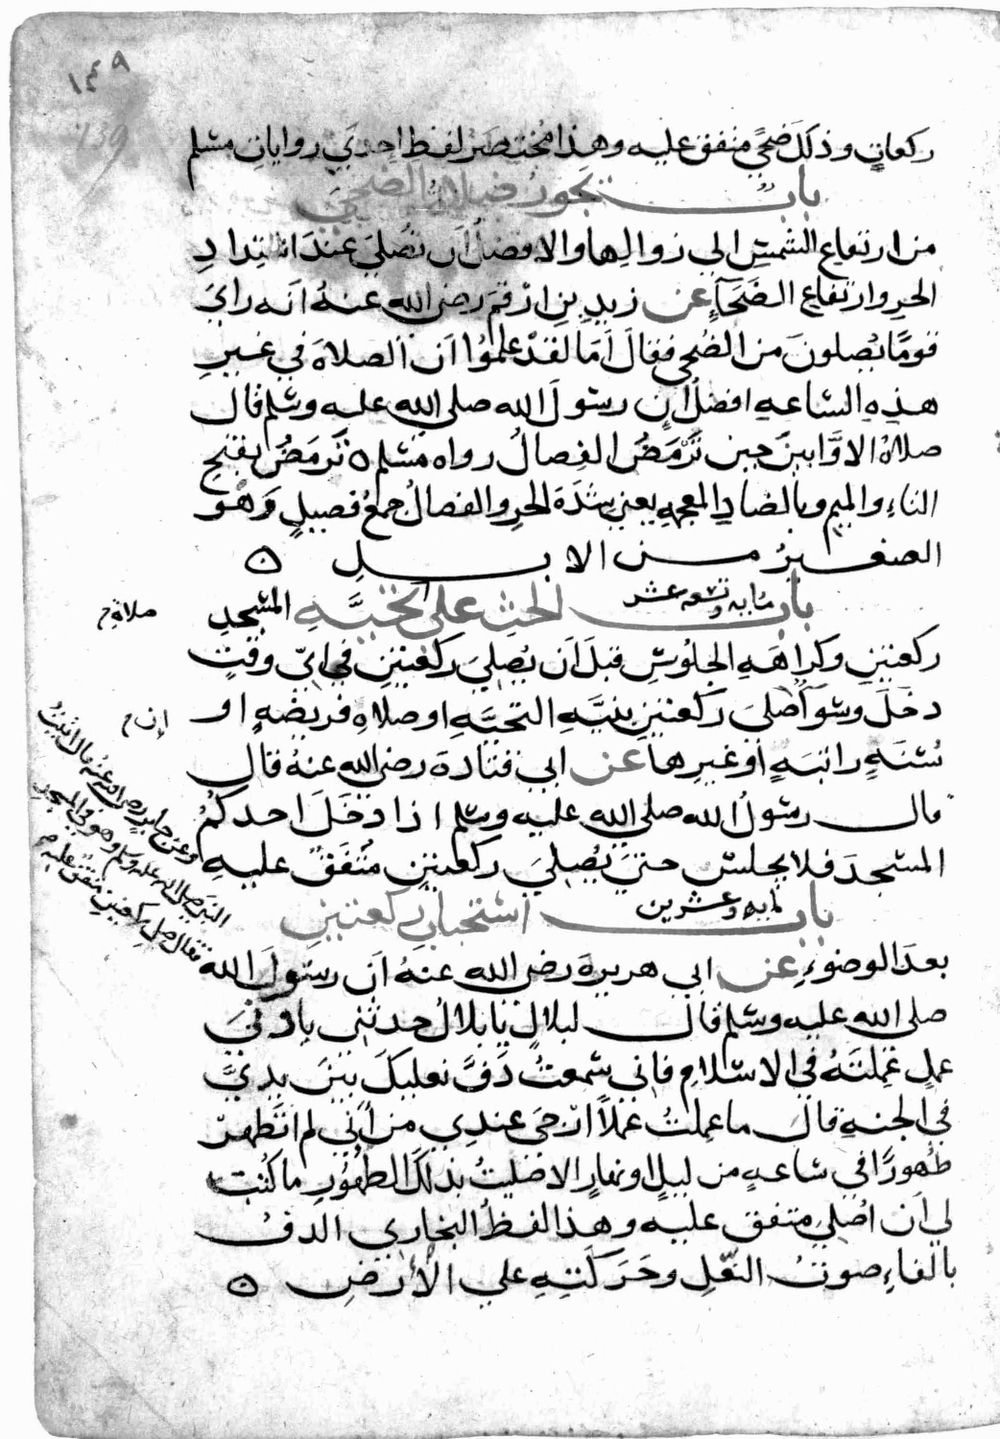 ١٣٩
139
ركعاتٍ وذلك ضحًى متفق عليه وهذا مختصر لفظ احدى روايات مسلم
باب تجوز صلاة الضحى
من ارتفاع الشمس الى زوالها والافضل ان تُصلى عند اشتداد
الحر وارتفاع الضحاء عن زيد بن ارقم رضى الله عنه انه راى
قومًا يُصلون من الضحى فقال اَمَا لقد علموا ان الصلاة في غير
هذه الساعه افضل ان رسول الله صلى الله عليه وسلم قال
صلاة الاوّابين حين تَرمَضُ الفِصالُ رواه مسلم ه تَرمَضُ بفتح
التاء والميم وبالضاد المعجمه يعني شدة الحر والفصال جمع فصيل وهو
الصغير من الابل ه
باب مايه وتسعه عشر الحث على تحيّه المسجد
صلاة م
ركعتين وكراهه الجلوس قبل ان يُصلي ركعتين في ايّ وقت
دخل وسوآ صلى ركعتين بنيّه التحيّه او صلاه فريضه او
ان م
سُنّهٍ راتبه او غيرها عن ابي قتادة رضى الله عنه قال
قال رسول الله صلى الله عليه وسلم اذا دخل احدكم
المسجد فلا يجلس حتى يُصلي ركعتين متفق عليه
وعن جابر رضى الله عنه قال اتيتُ
النبى صلى الله عليه وسلم وهو في المسجد
فقال صل ركعتين متفق عليه م
باب مايه وعشرين استحباب ركعتين
بعد الوضوء عن ابي هريرة رضى الله عنه ان رسول الله
صلى الله عليه وسلم قال لبلال يا بلال حدثنى بارجى
عمل عملته في الاسلام فانى سمعت دَفّ نعليك بين يديّ
في الجنه قال ما عملتُ عملاً ارجى عندي من اَنّي لم اتطهرْ
طُهورًا في ساعه من ليل او نهار الا صليتُ بذلك الطهُور ما كُتب
لي ان اصلي متفق عليه وهذا لفظ البخاري الدفُ
بالفاء صوتُ النعل وحَرَكتِهِ على الأرض ه